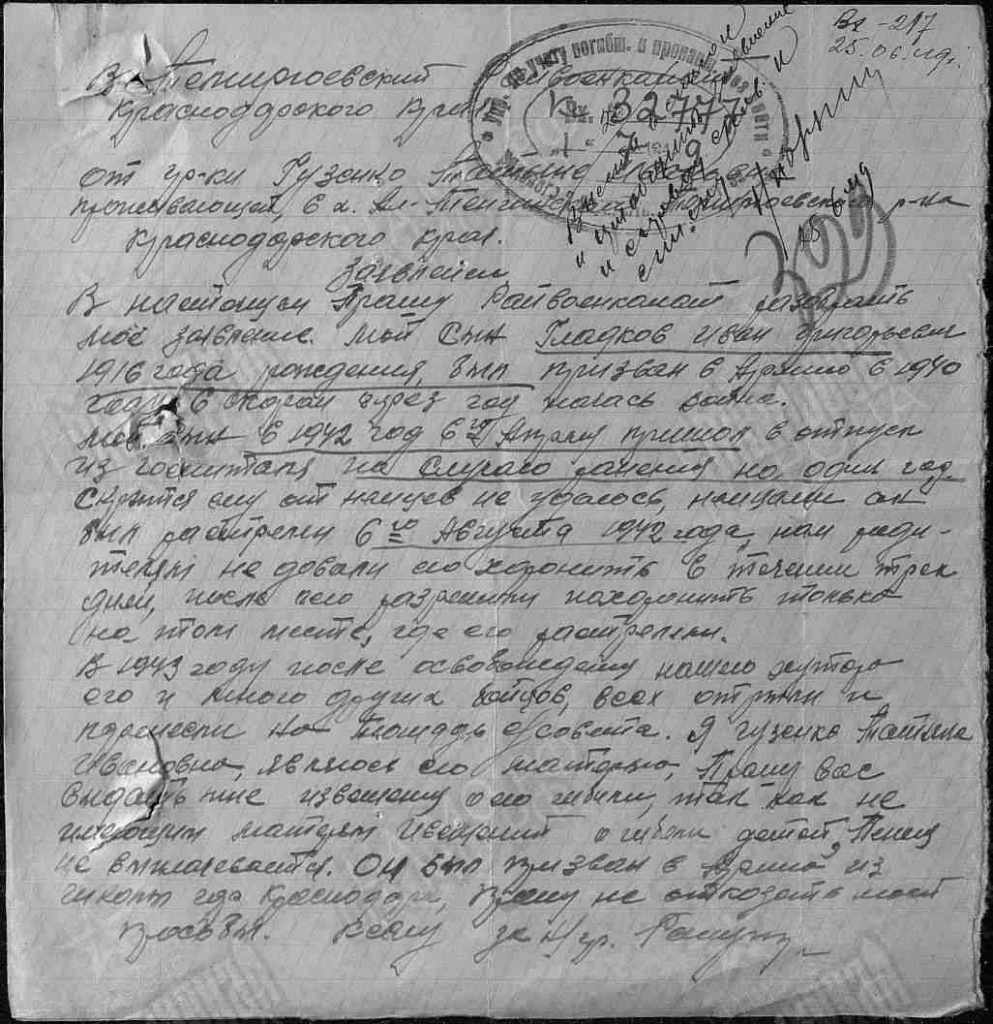 Вх -217
25.06.49г.
Упр. по учету погибш. и пропавш. без вести
Вх. 32777
В Темиргоевский Райвоенкомат
Краснодарского края
от гр-ки Гузенко Татьяны
проживающей, в х. Темиргоевского р-на
Краснодарского края.
3099
Заявлением
В настоящем Прашу Райвоенкомат разобрать
моё заявление. мой Сын Гладков Иван Григорьевич
1916 года рождения, был призван в Армию в 1940
году в скором через год началась война.
мой сын в 1942 год 6го Апреля пришол в отпуск
из госпиталя по случаю ранения на один год
Скрытся ему от немцев не удалось, немцами он
был растрелен 6го Августа 1942 года, нам роди-
телям не довали его хоронить в течении трех
дней, после чего разрешили похоронить только
на том месте, где его растреляли.
В 1943 году после освобождения нашего хутора
его и много других бойцов, всех отрыли и
перенесли на площадь с/совета. Я гузенко Татьяна
Ивановна, являюсь его матерью, Прашу вас
выдать мне извещение о его гибели, так как не
имеющим матерям о гибели детей, Пенсия
не выплачевается. Он был призван в Армию из
школы гор Краснодара, прашу не отказать моей
прозьбы.